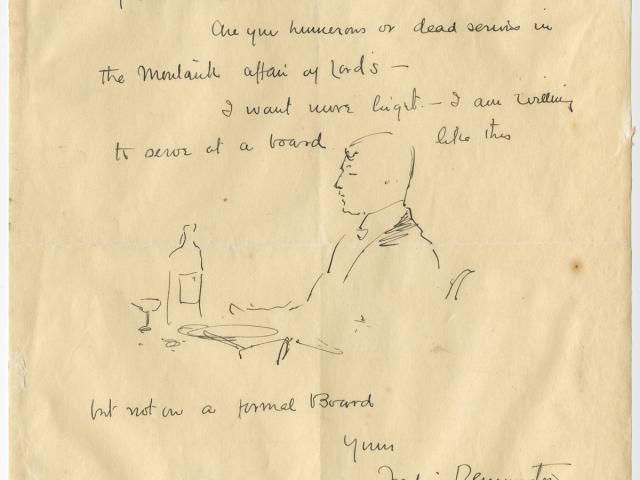 Are you humorous or dead serious in
the Montauk affair of Lord's —
I want more light. — I am willing
to serve at a board like this
but not on a formal Board
Yours